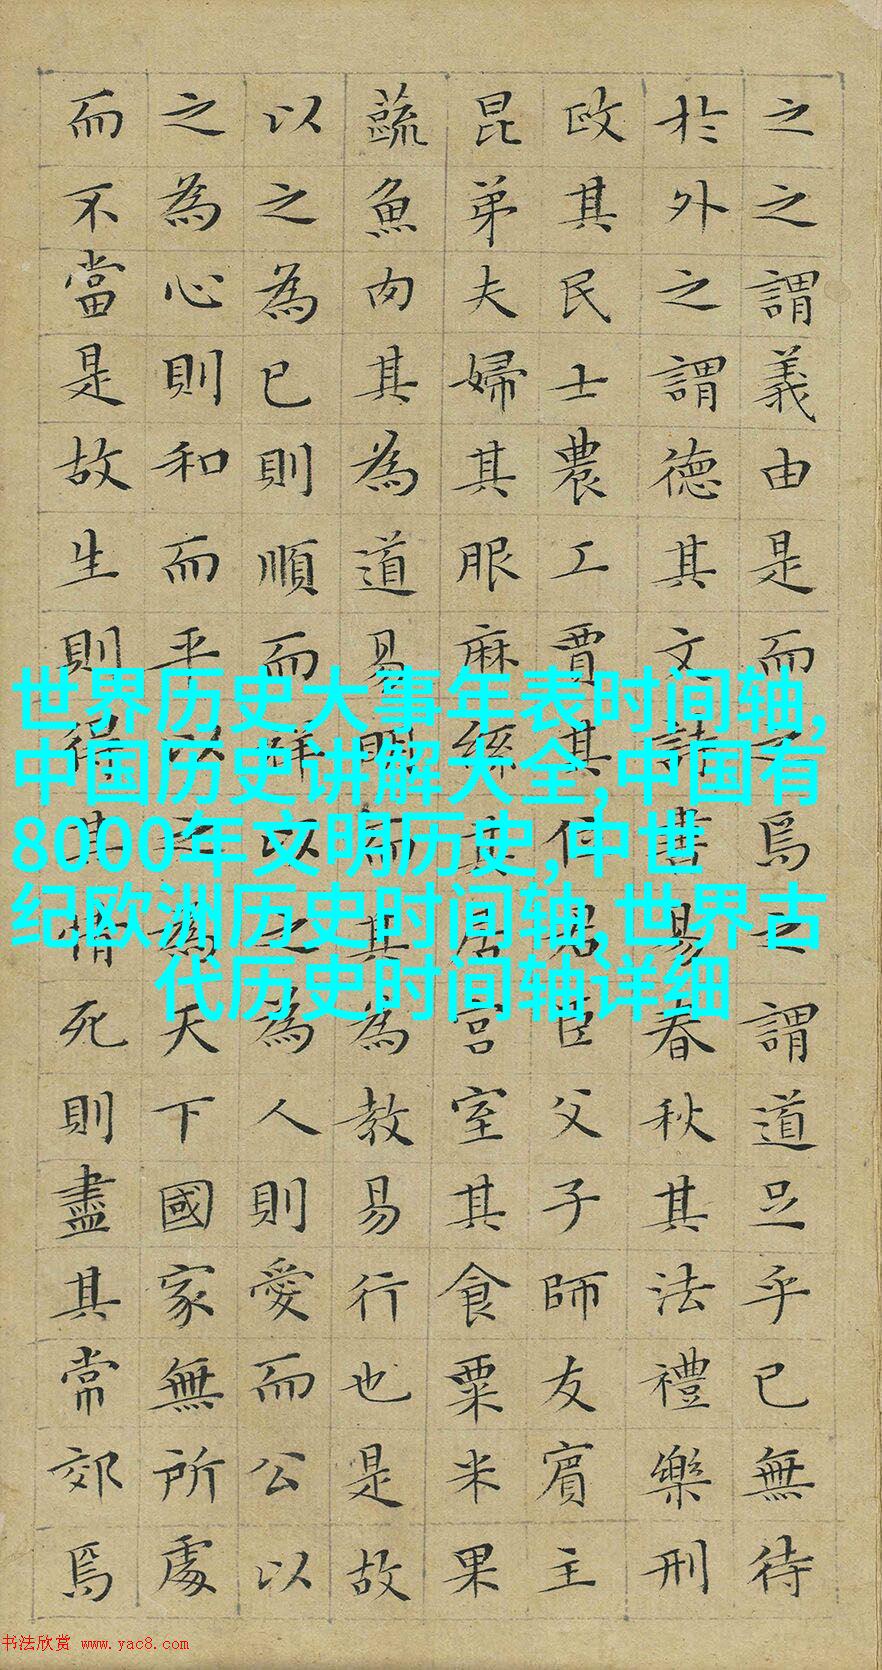 之之謂義由是而之焉之謂道足乎已無待
於外之謂德其文詩書易春秋其法禮樂刑
政其民士農工賈其位君臣父子師友賓主
昆弟夫婦其服麻絲其居宮室其食粟米果
蔬魚肉其為道易明而其為教易行也是故
以之為已則順而祥以之為人則愛而公以
之為心則和而平以之為天下國家無所處
而不當是故生則得其情死則盡其常郊焉
世界历史大事年表时间轴,
中国历史讲解大全,中国有
8000年文明历史,中世
纪欧洲历史时间轴,世界古
代历史时间轴详细
书法欣赏 www.yac8.com